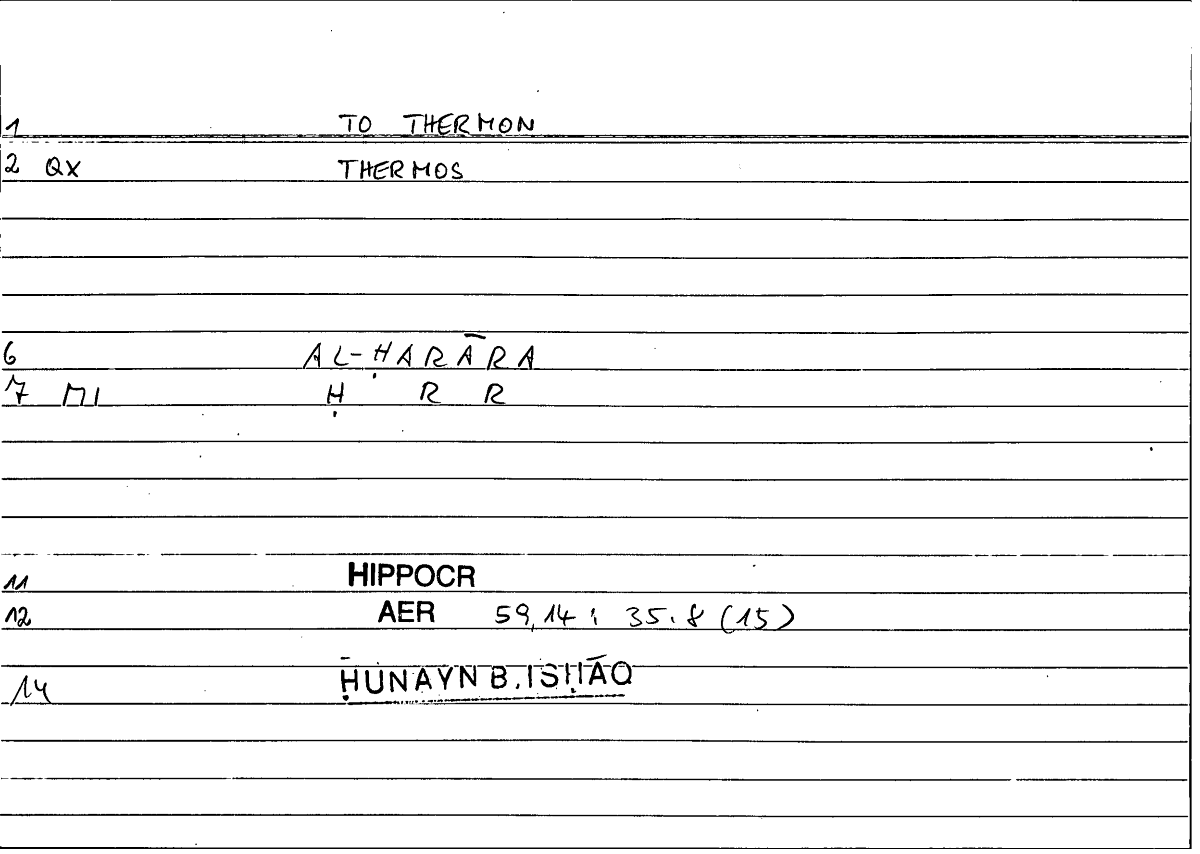 1 TO THERMON
2 QX THERMOS
6 AL-ḤARĀRA
7 MI Ḥ R R
11 HIPPOCR
12 AER 59,14 : 35.8 (15)
14 ḤUNAYN B. ISḤĀQ